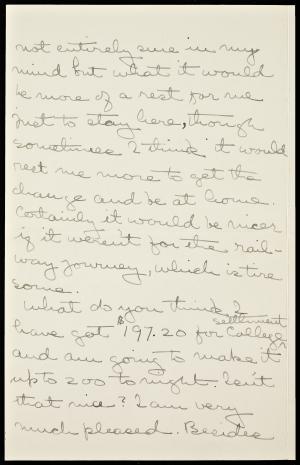 not entirely sure in my
mind but what it would
be more of a rest for me
just to stay here, though
sometimes I think it would
rest me more to get the
change and be at home.
Certainly it would be nicer
if it weren't for the rail-
way journey, which is tire
some.
What do you think. I
have got $197.20 for College settlement
and am going to make it
up to 200 to night. Isn't
that nice? I am very
much pleased. Besides